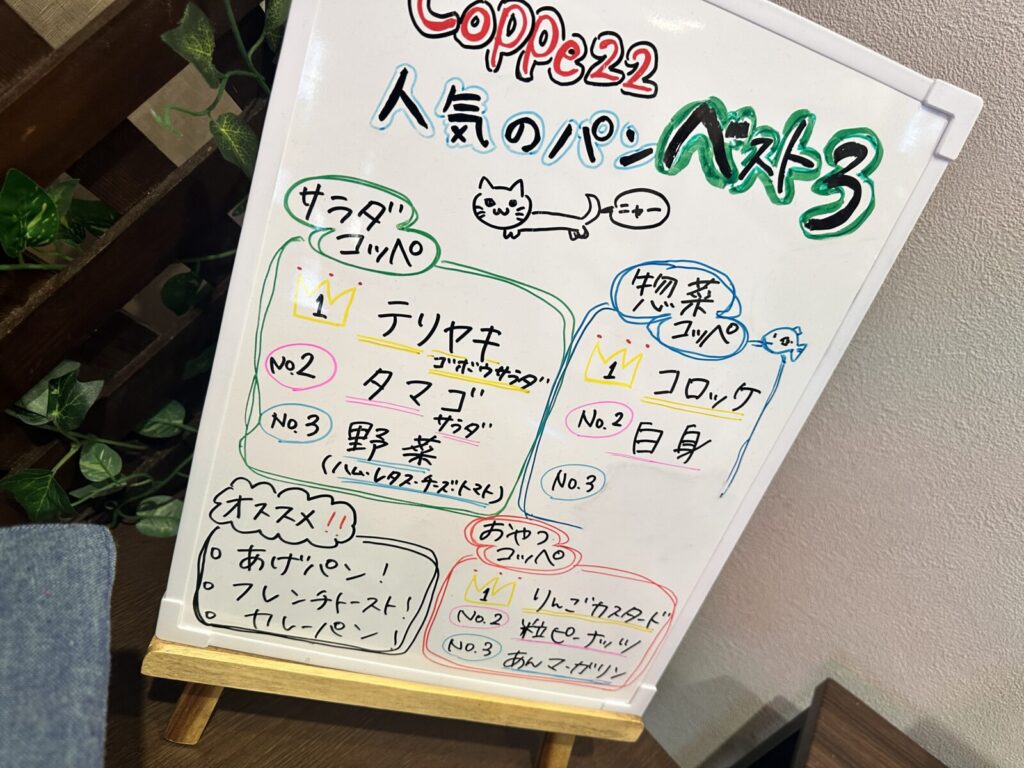 Coppe22
人気のパンベスト3
ニャー
サラダ
コッペ
1 テリヤキ
ゴボウサラダ
No.2 タマゴ
サラダ
No.3 野菜
(ハム・レタス・チーズ・トマト)
惣菜
コッペ
1 コロッケ
No.2 白身
No.3
オススメ!!
○ あげパン!
○ フレンチトースト!
○ カレーパン!
おやつ
コッペ
1 りんごカスタード
No.2 粒ピーナッツ
No.3 あんマーガリン